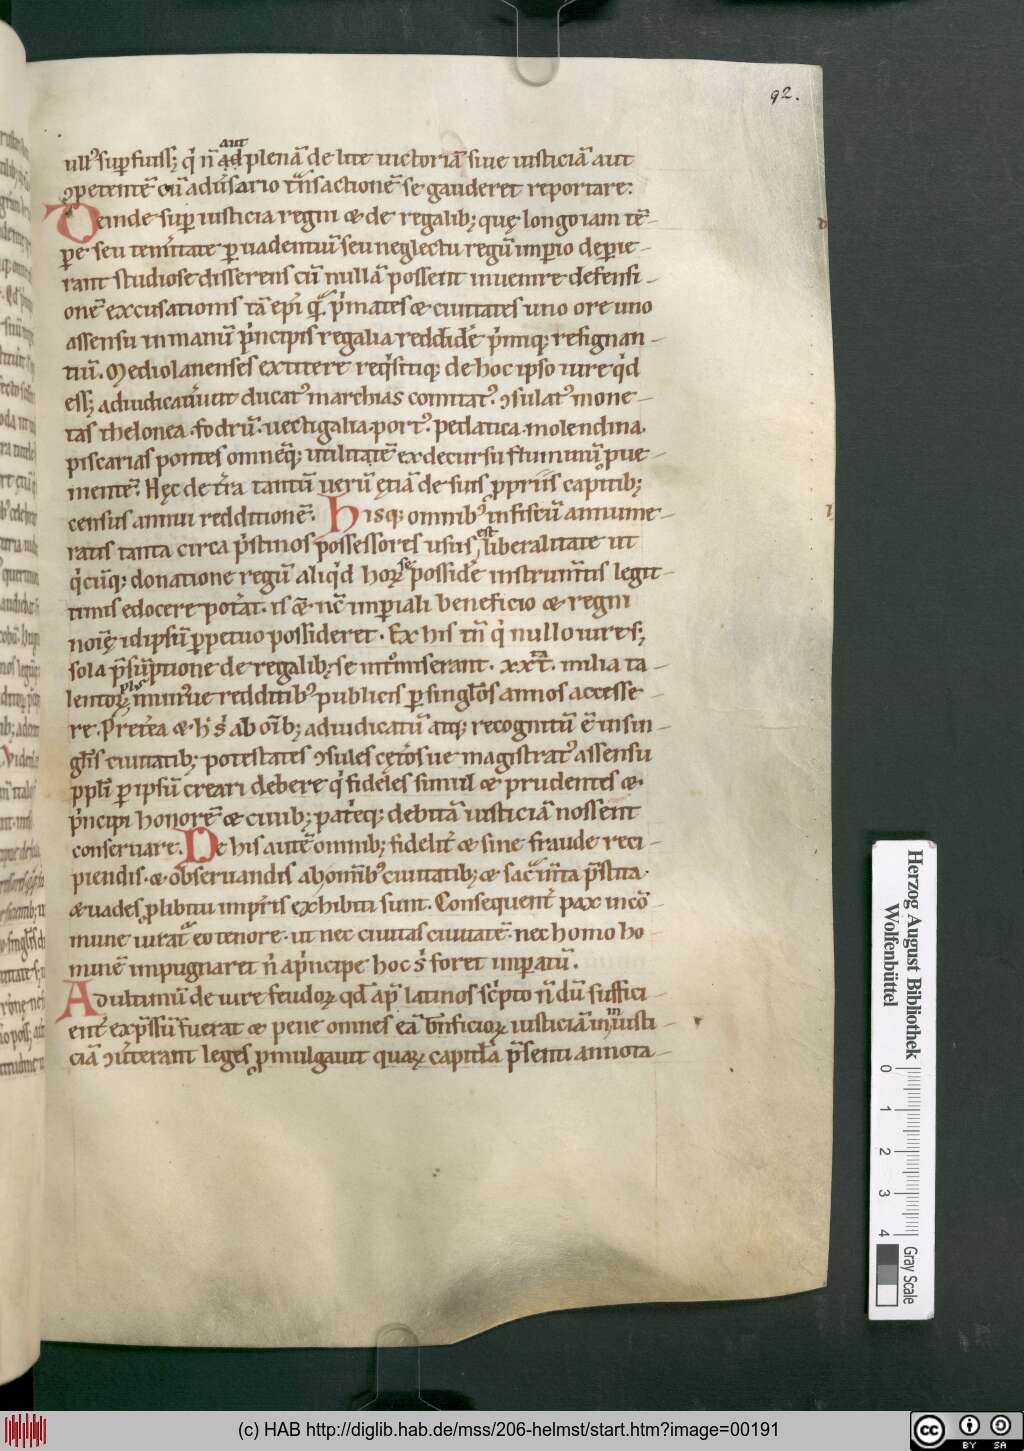 92.
aut
ullꝰ suꝑfuiss; qͥ n̄ ad plenā de lite uictoriā siue iusticiā aut
ꝯpetentē cū aduˀsario tͣnsactionē se gauderet reportare:
Deinde suꝑ iusticia regni & de regalib; quę longo iam tē-
ꝑe seu temˀitate ꝑuadentiū seu neglectu regū imꝑio deꝑie-
rant studiose disserens cū nullā possent inuenire defensi-
onē excusationis tā ep̄i qͣ pͥmates & ciuitates uno ore uno
assensu in manū pͥncipis regalia reddidēr pͥmiq; resignan-
tiū. Mediolanenses extitere reqͥsitiq; de hoc ipso iure qͥd
ess; adiudicauˀunt ducatꝰ marchias comitatꝰ. ꝯsulatꝰ mone-
tas thelonea. fodrū. uectigalia. portꝰ. pedatica. molendina.
piscarias pontes omnēq; utilitatē ex decursu fluminū ꝓue-
nientē. Hęc de tˀra tantū uerū ętiā de suis ꝓpriis capitib;
census annui redditionē. Hisq; omnibꝰ in fiscū annume-
ratis tanta circa pͥstinos possessores usus est liberalitate ut
qͥcūq; donatione regū aliqͥd horꝝ se possidēˀ instrumˀtis legit-
timis edocere potˀat. is &̄ nc̄ imꝑiali beneficio & regni
noīę idipsū ꝑpetuo possideret. Ex his tn̄ qͥ nullo iure s;
sola pͥsūptione de regalib; se intˀmiserant. xxͭͣ. milia ta-
lentorꝝ plꝰ minˀue redditibꝰ publicis ꝑ singl̄os annos accesse-
re. Pretˀea & h̄ sͥ ab oīb; adiudicatū atq; recognitū ē in sin-
gl̄is ciuitatib; potestates ꝯsules cętˀos ue magistratꝰ assensu
ppl̄i ꝑ ipsū creari debere qͥ fideles simul & prudentes &
pͥncipi honorē & ciuib; patˀeq; debitā iusticiā nossent
conseruare. De his autē omnib; fidelitˀ & sine fraude reci-
piendis. & obseruandis ab omībꝰ ciuitatib; & sacͣmˀta pͥstita.
& uades ꝓ libitu impˀris exhibiti sunt. Consequentˀ pax in cō-
mune iuratͣ eo tenore. ut nec ciuitas ciuitatē. nec homo ho-
minē impugnaret n̄ a pͥncipe hoc sͥ foret imꝑatū.
Ad ultimū de iure feudorꝝ qd̄ ap̄ latinos scͥpto n̄dū suffici-
entˀ exp̄ssū fuerat & pene omnes eā bn̄ficiorꝝ iusticiā in iniusti-
ciā ꝯuˀterant leges ꝓmulgauit quarꝝ capitl̄a p̄senti annota-
Herzog August Bibliothek
Wolfenbüttel
0 1 2 3 4
Gray Scale
(c) HAB http://diglib.hab.de/mss/206-helmst/start.htm?image=00191
cc BY SA